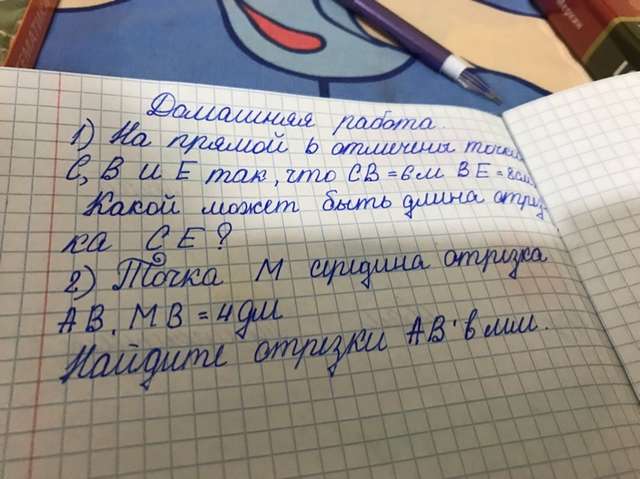 Домашняя работа.
1) На прямой b отмечены точки
С, В и Е так, что СВ = 6м ВЕ = 8см.
Какой может быть длина отрез-
ка СЕ?
2) Точка М середина отрезка
АВ. МВ = 4дм
Найдите отрезки АВ в мм.